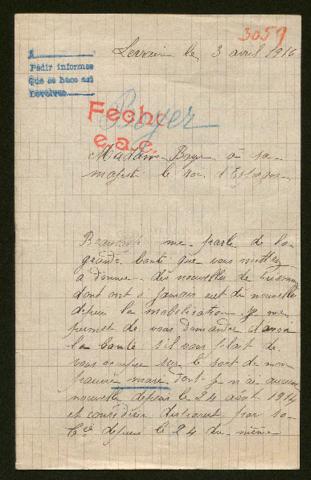 3059
Levrain le 3 avril 1916
A
Pedir informes
Que se hace así
Devolver
Boyer
Fecha
e.a.c.
Madame Boyer à sa
majesté le roi d'Espagne
me parle de la
grande bonté que vous mettez
a donner des nouvelles de
dont ont a jamais eut de nouvelles
depuis la mobilisation je me
permet de vous demander d'avoir
la bonté s'il vous plait de
vous occuper sur le sort de mon
pauvre mari dont je n'ai aucune
nouvelle depuis le 24 août 1914
et considérer disparut par sa
Cie depuis le 24 du même